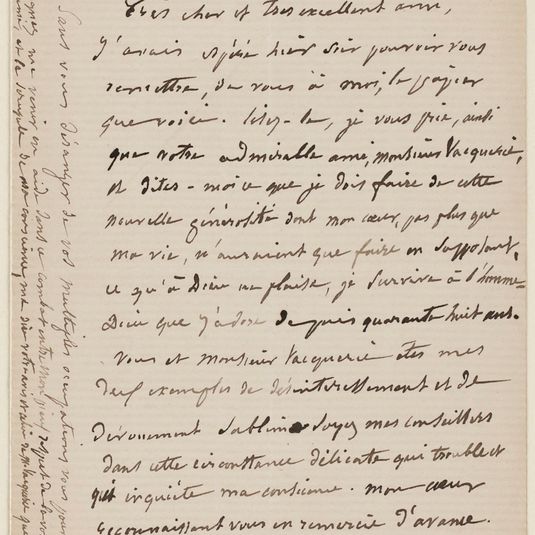 Très cher et très excellent ami,
J'avais espéré hier soir pouvoir vous
remettre, de vous à moi, le papier
que voici. Lisez-le, je vous prie, ainsi
que votre admirable ami, monsieur Vacquerie,
et dites-moi ce que je dois faire de cette
nouvelle générosité dont mon cœur, pas plus que
ma vie, n'auraient que faire en supposant,
ce qu'à Dieu ne plaise, je survive à l'homme-
Dieu que j'adore depuis quarante huit ans.
Vous et monsieur Vacquerie êtes mes
deux exemples de désintéressement et de
dévouement sublime soyez mes conseillers
dans cette circonstance délicate qui trouble et
qui inquiète ma conscience. mon cœur
reconnaissant vous en remercie d'avance.
Sans vous déranger de vos multiples occupations vous pour
me venir en aide dans ce combat entre mon respect de la vo
et le scrupule de ma conscience, me dire votre avis et celui de M. Vacquerie que